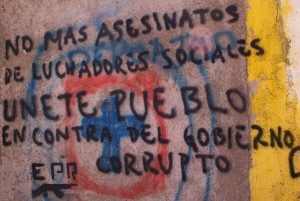 NO MAS ASESINATOS
DE LUCHADORES SOCIALES
UNETE PUEBLO
EN CONTRA DEL GOBIERNO
CORRUPTO
EPR